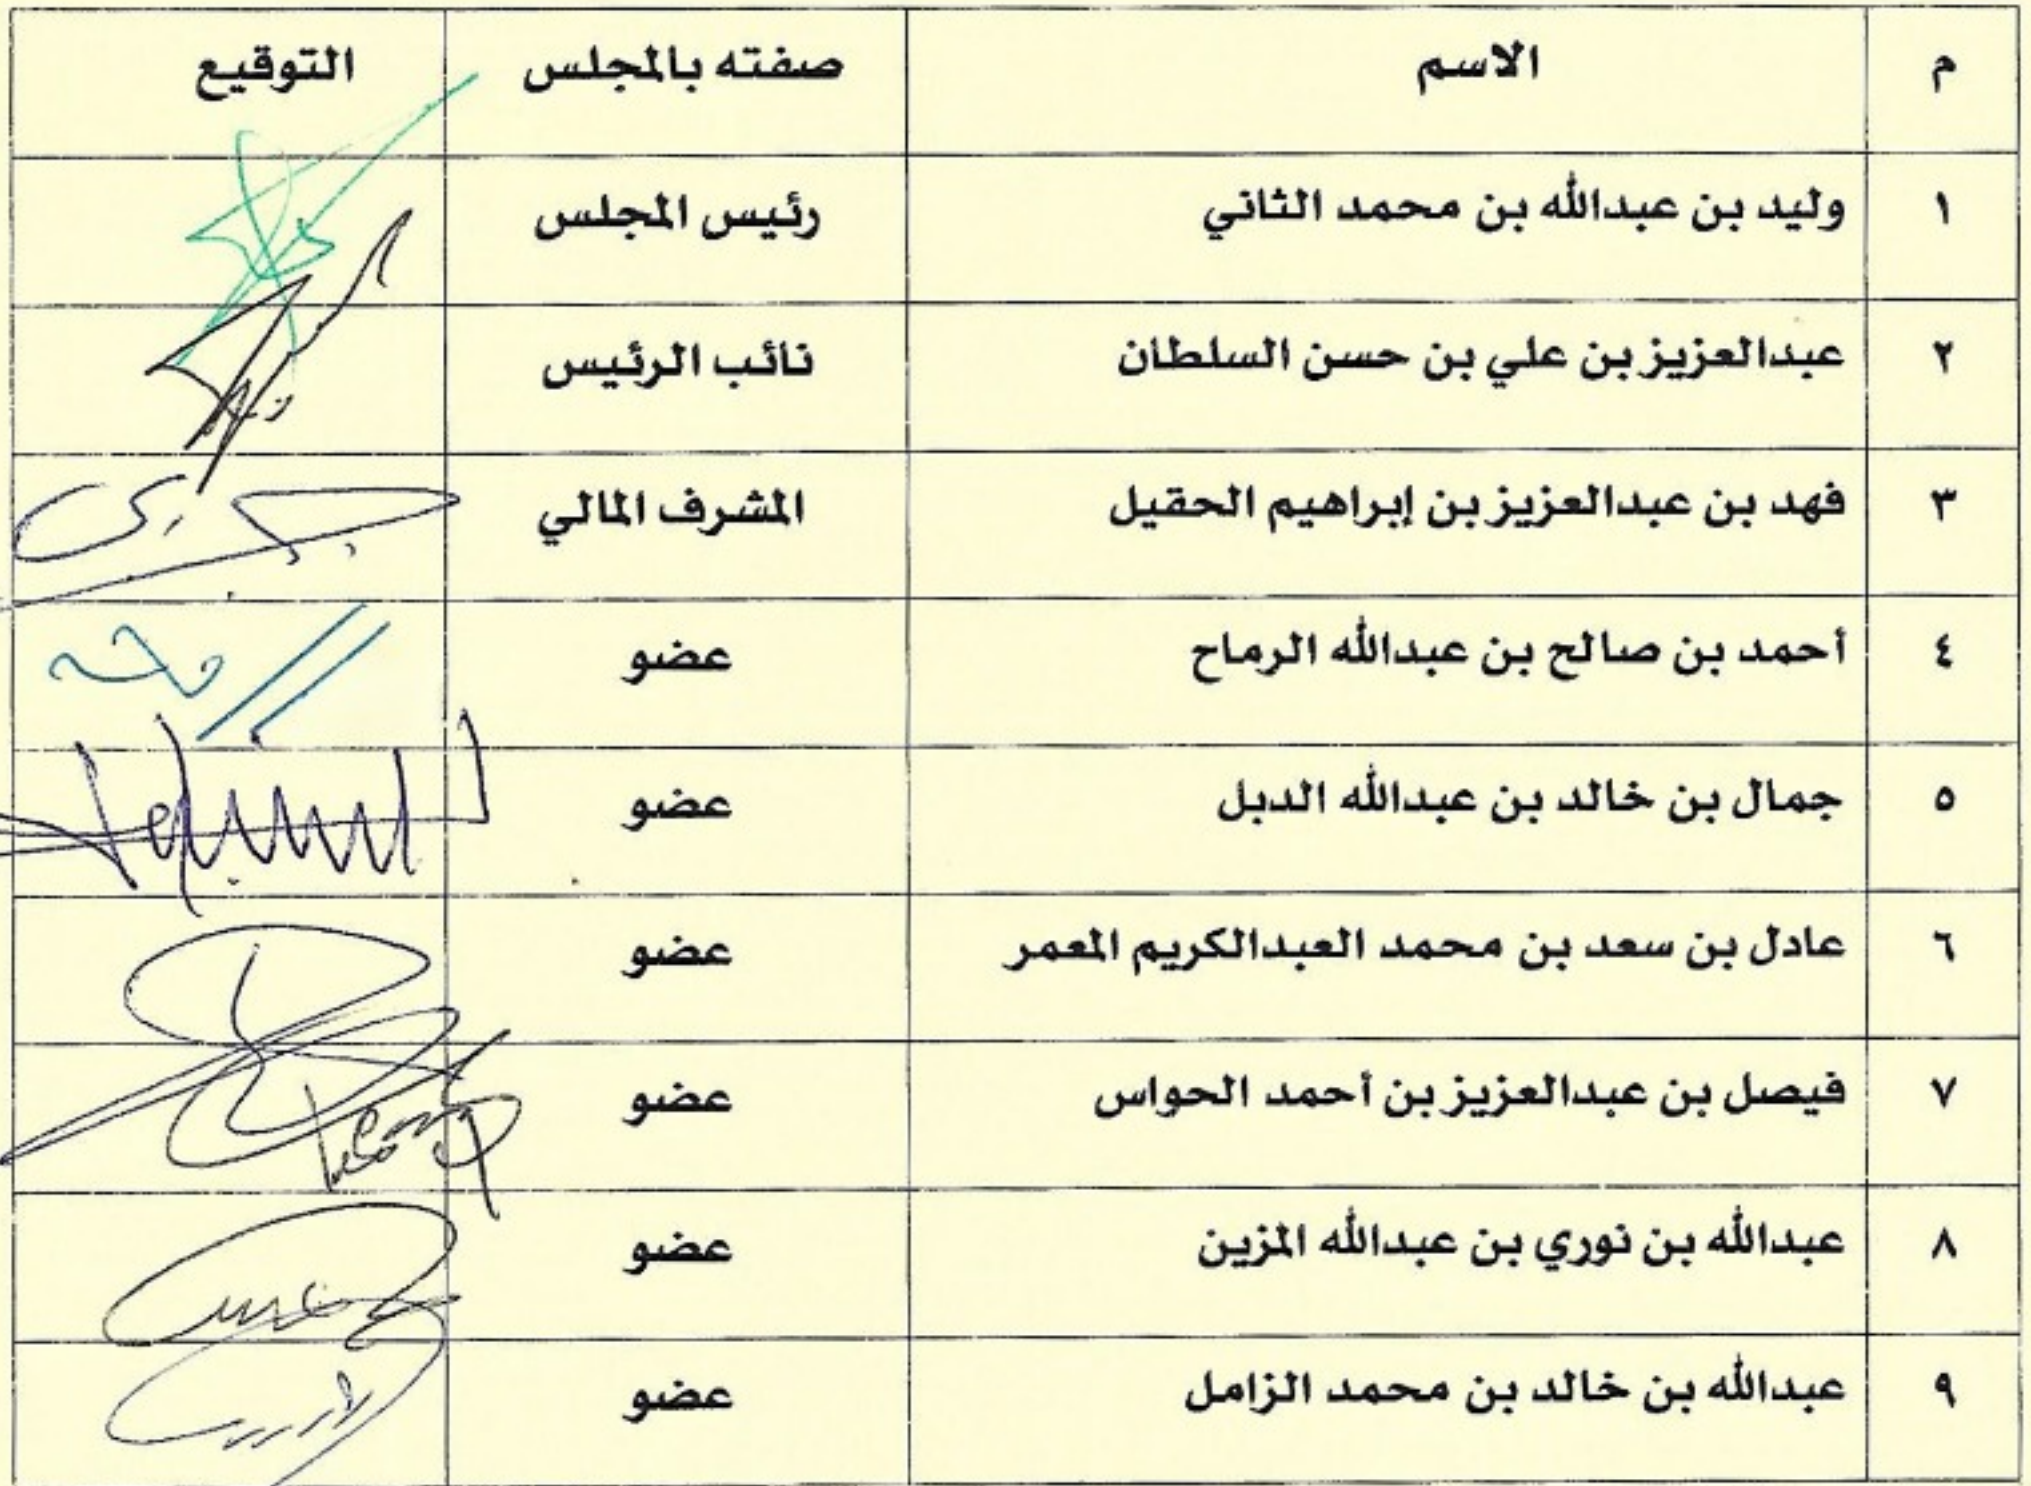 م الاسم صفته بالمجلس التوقيع
١ وليد بن عبدالله بن محمد الثاني رئيس المجلس
٢ عبدالعزيز بن علي بن حسن السلطان نائب الرئيس
٣ فهد بن عبدالعزيز بن إبراهيم الحقيل المشرف المالي
٤ أحمد بن صالح بن عبدالله الرماح عضو
٥ جمال بن خالد بن عبدالله الدبل عضو
٦ عادل بن سعد بن محمد العبدالكريم المعمر عضو
٧ فيصل بن عبدالعزيز بن أحمد الحواس عضو
٨ عبدالله بن نوري بن عبدالله المزين عضو
٩ عبدالله بن خالد بن محمد الزامل عضو